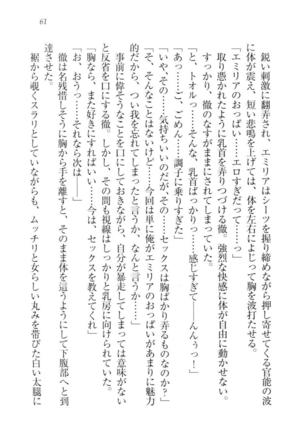 61
鋭い刺激に翻弄され、エミリアはシーツを握り締めながら押し寄せてくる官能の波
に体が震え、短い悲鳴を上げては、体を左右によじって胸を波打たせる。
「エミリアのおっぱい……エロすぎだって……っ」
取り憑かれたように乳首を弄りつづける徹。強烈な快感に体が自由に動かせない。
すっかり、徹のなすがままにされてしまっていた。
「と、トオルっ……そんな、乳首ばっかり……感じすぎて……んんうっ！」
「あっ……ご、ごめん……調子に乗りすぎた」
「いや、その……気持ちいいのだが、その……セックスは胸ばかり弄るものなのか？」
「そ、そんなことはないけど……今回は単に俺がエミリアのおっぱいがあまりに魅力
的だから、つい我を忘れてしまったと言うか、なんと言うか……」
事前に偉そうなことを口にしておきながら、自分が暴走してしまっては意味がない
と反省を口にする徹。しかし、その間も視線はしっかりと乳房に向けられていた。
「胸なら、また好きにすればいい……今は、セックスを教えてくれ」
「お、おうっ……それなら次は――」
徹は名残惜しそうに胸から手を離すと、そのまま体を這うようにして下腹部へと到
達させた。
裾から覗くスラリとしていながらも、ムッチリと女らしい丸みを帯びた白い太腿に